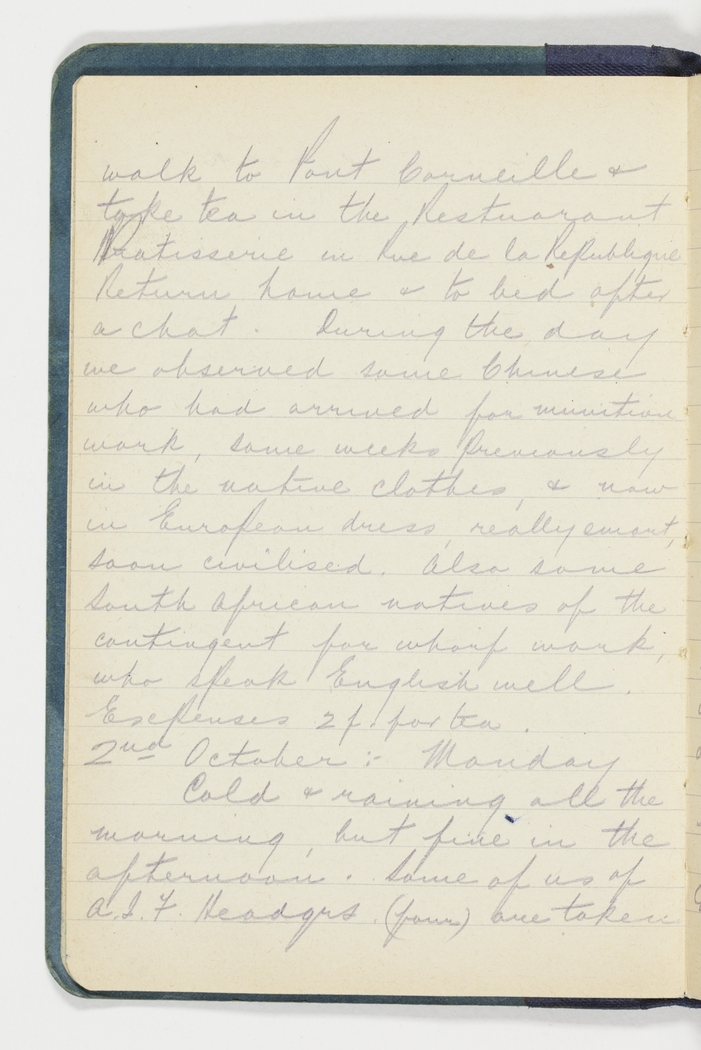 walk to Pont Corneille &
take tea in the Restuarant
Pratisserie in Rue de la Republique
Return home & to bed after
a chat. During the day
we observed some Chinese
who had arrived for munition
work, some weeks previously
in the native clothes, & now
in European dress, really smart,
soon civilised. Also some
South African natives of the
contingent for wharf work,
who speak English well.
Exepenses 2f. for tea.
2nd October :- Monday
Cold & raining all the
morning, but fine in the
afternoon. Some of us of
A.I.F. Headqrs. (four) are taken